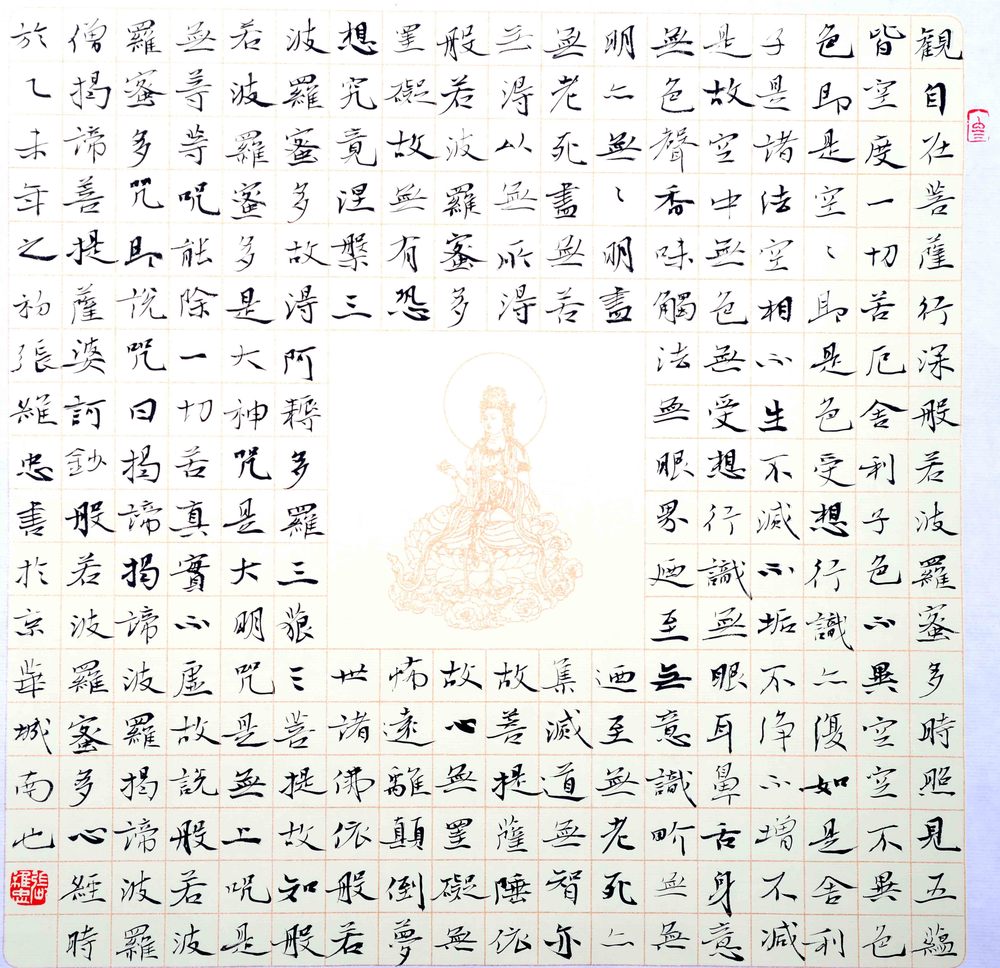 観自在菩薩行深般若波羅蜜多時照見五蘊
皆空度一切苦厄舍利子色不異空空不異色
色即是空〻即是色受想行識亦復如是舍利
子是諸法空相不生不滅不垢不浄不增不減
是故空中無色無受想行識無眼耳鼻舌身意
無色聲香味觸法無眼界廼至无意識界無無
明亦無〻明盡迺至無老死亦
無老死盡無苦集滅道無智亦
无得以無所得故菩提薩埵依
般若波羅蜜多故心無罣礙無
罣礙故無有恐怖遠離顛倒夢
想究竟涅槃三世諸佛依般若
波羅蜜多故得阿耨多羅三藐三菩提故知般
若波羅蜜多是大神咒是大明咒是無上咒是
無等等呪能除一切苦真實不虛故說般若波
羅蜜多咒即說咒曰揭諦揭諦波羅揭諦波羅
僧揭諦菩提薩婆訶鈔般若波羅蜜多心經時
於乙未年之初張維忠書於京華城南也
張維忠